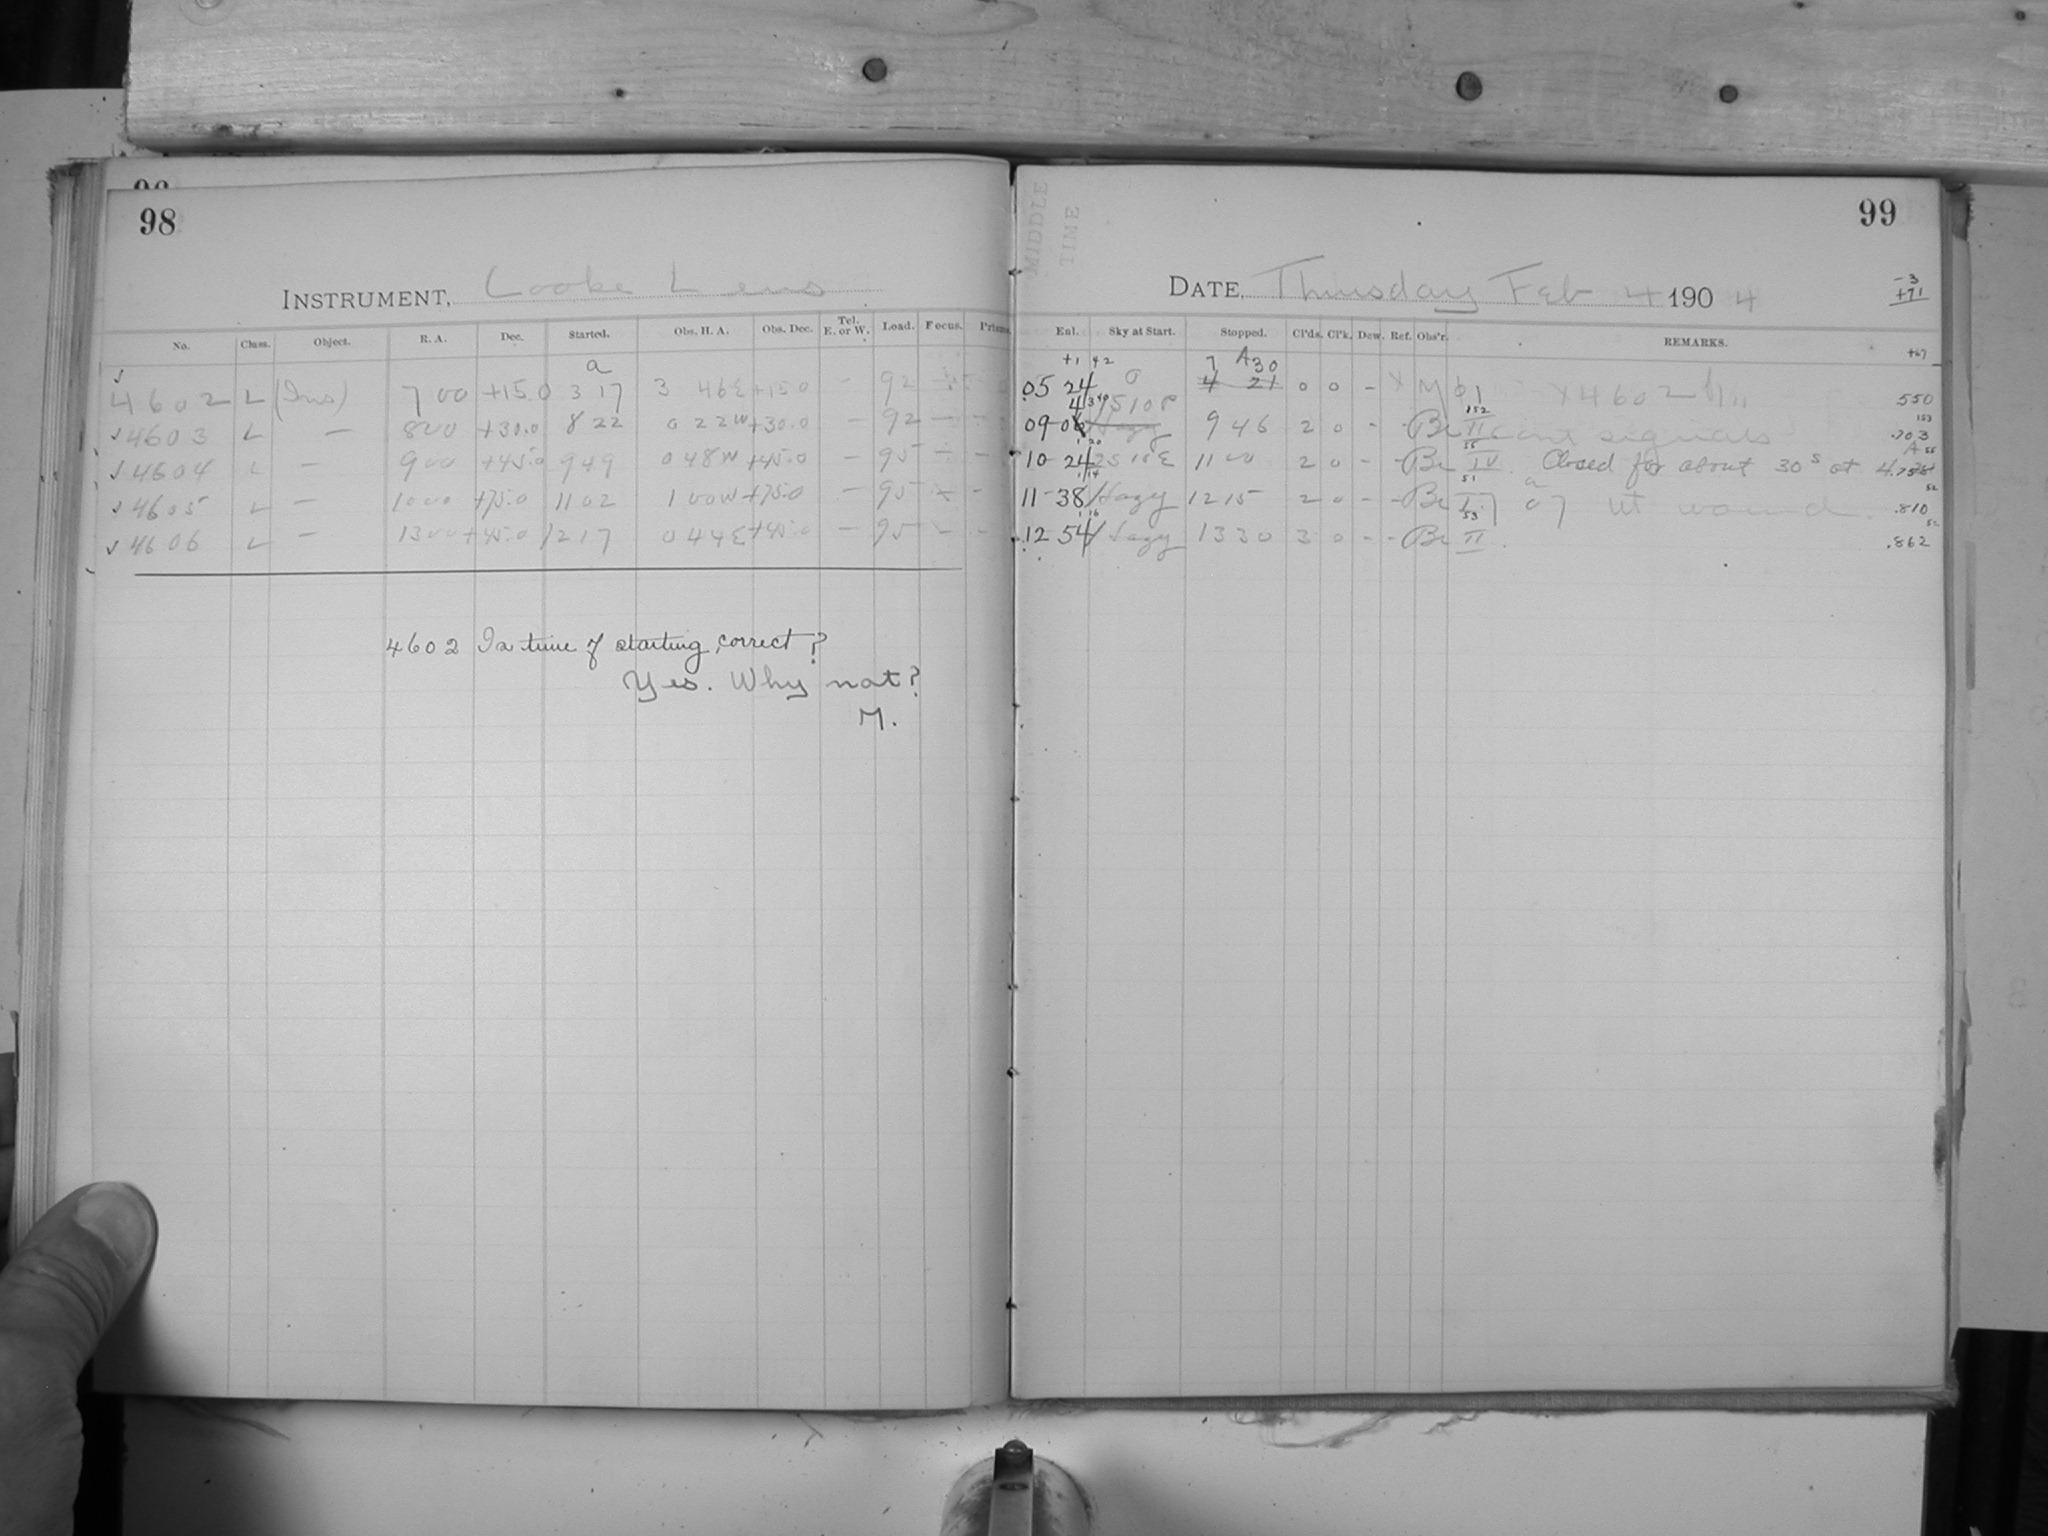 98
INSTRUMENT, Cooke Lens
No. Class. Object. R. A. Dec. Started. Obs. H. A. Obs. Dec. Tel. E. or W. Load. Focus. Prisms.
a
4602 L (Ins) 7 00 +15.0 3 17 3 46E +15.0 - 92
4603 L - 8 00 +30.0 8 22 0 22W +30.0 - 92 - -
4604 L - 9 00 +45.0 9 49 0 48W +45.0 - 95 - -
4605 L - 10 00 +75.0 11 02 1 00W +75.0 - 95 - -
4606 L - 13 00 +45.0 12 17 0 44E +45.0 - 95 - -
4602 Is time of starting correct?
Yes. Why not?
M.
99
MIDDLE
TIME
DATE, Thursday Feb 4 1904
-3
+71
Enl. Sky at Start. Stopped. Cl'ds. Cl'k. Dew. Ref. Obs'r. REMARKS.
+67
+1 42 7 A 30
05 24 0 4 21 0 0 - X M 1 X4602 550
09 06 Hazy 9 46 2 0 - - Be II cont signals .703
10 24 25 10 E 11 00 2 0 - - Be IV. Closed for about 30s at
11 38 Hazy 12 15 2 0 - - Be I. wound .810
12 54 Hazy 13 30 3 0 - - Be II. .862